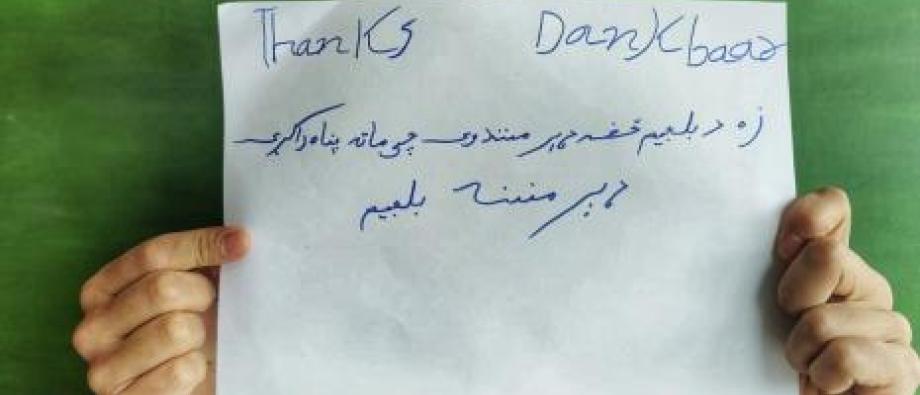 Thanks Dankbaar
زه د بلجیم څخه ډېر منندوی چې ماته پناه راکړې
ډېر مننه بلجیم